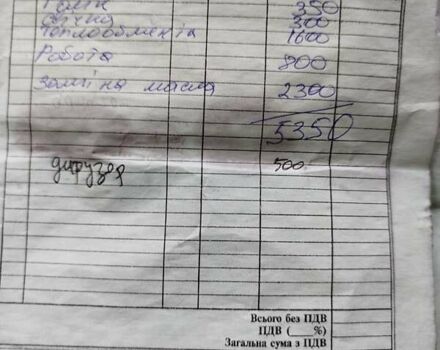 350
300
теплообменіа 1600
Робота 800
Заміна масла 2300
5350
дифузор 500
Всього без ПДВ
ПДВ (___%)
Загальна сума з ПДВ